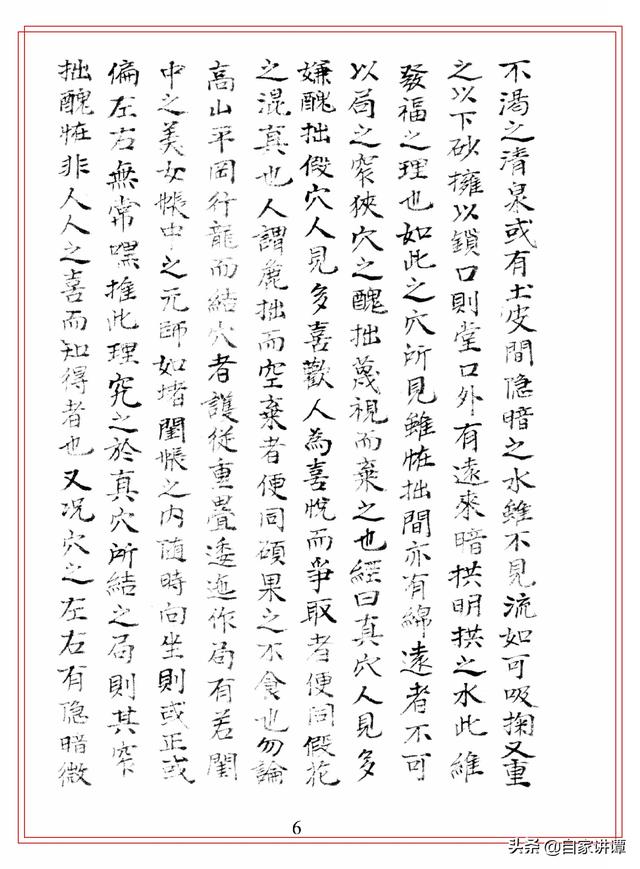 不渴之清泉或有土皮間隐暗之水雖不見流如可吸掬又重
之以下砂擁以鎖口則堂口外有遠來暗拱明拱之水此維
發福之理也如此之穴所見雖恠拙間亦有綿遠者不可
以局之窄狹穴之醜拙蔑視而棄之也經曰真穴人見多
嫌醜拙假穴人見多喜歡人為喜悅而爭取者便同假花
之混真也人謂麄拙而空棄者便同碩果之不食也勿論
高山平罔行龍而結穴者護從重疊逶迤作局有若閨
中之美女帳中之元師如堵閨帳之内随時向坐則或正或
偏左右無常嘿推此理究之於真穴所結之局則其窄
拙醜恠非人人之喜而知得者也又况穴之左右有隐暗微
6
头条 @自家讲谭